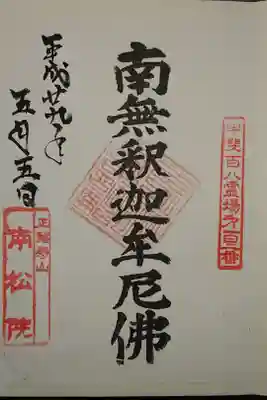 甲斐百八霊場第百番
南無釈迦牟尼佛
平成廿九年
五月五日
南松院